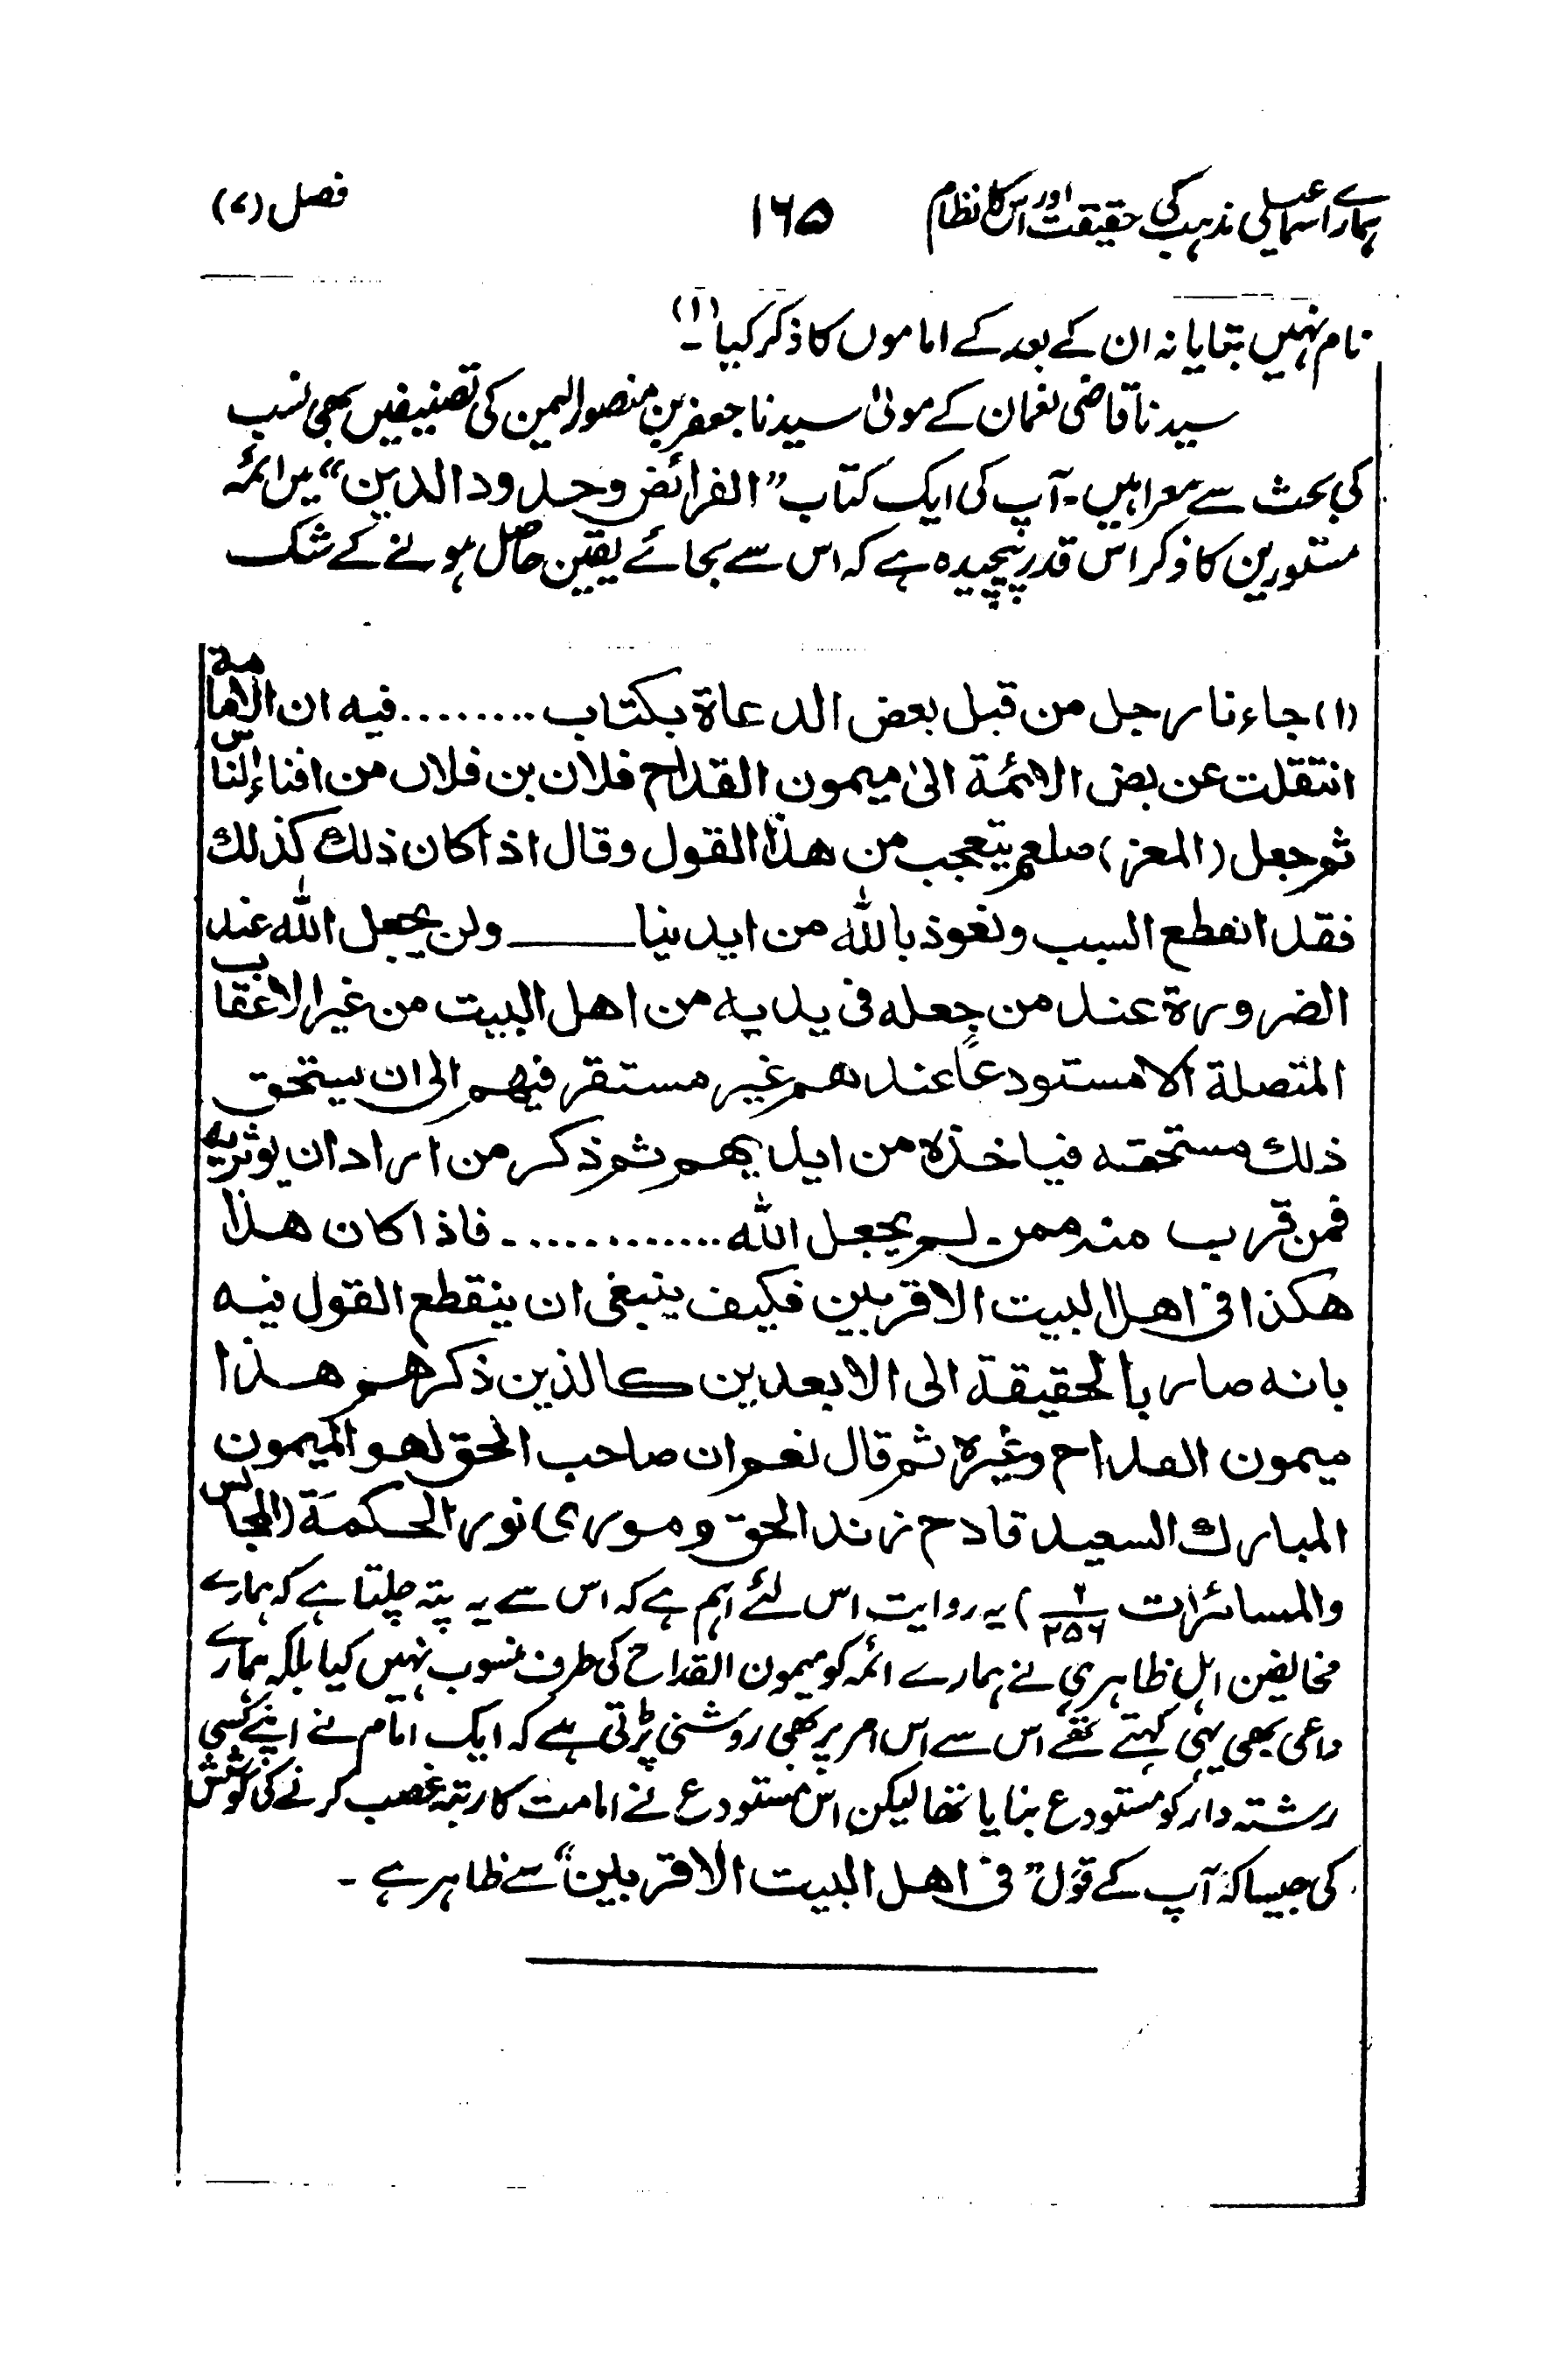 ہمارے اسماعیلی مذہب کی حقیقت اور اس کا نظام ۱۶۵ فصل (۷)
نام نہیں بتایا نہ ان کے بعد کے اماموں کا ذکر کیا (۱)۔
سیدنا قاضی نعمان کے مولیٰ سیدنا جعفر بن منصور الیمن کی تصنیفیں بھی نسب
کی بحث سے معرا ہیں۔ آپ کی ایک کتاب "الفرائض وحدود الدین" میں ائمۂ
مستورین کا ذکر اس قدر پیچیدہ ہے کہ اس سے بجائے یقین حاصل ہونے کے شک
(۱) جاءنا رجل من قبل بعض الدعاة بکتاب ........ فیه ان الامامة
انتقلت عن بعض الائمة الیٰ میمون القداح فلان بن فلان من افناء الناس
ثم جعل (المعز) صلعم یتعجب من هذا القول وقال اذا کان ذلك کذلك
فقد انقطع السبب ونعوذ بالله من ایدینا ـــــ ولن یجعل الله عند
الضرورة عند من جعله فی یدیه من اهل البیت من غیر الاعقاب
المتصلة الا مستودعاً عندهم غیر مستقر فیهم الی ان یستحق
ذلك مستحقه فیاخذه من ایدیهم ثم ذکر من اراد ان یوثر به
فمن قرب منه ممن لم یجعل الله ............. فاذا کان هذا
هکذا فی اهل البیت الاقربین فکیف ینبغی ان ینقطع القول فیه
بانه صار بالحقیقة الی الابعدین کالذین ذکرهم هذا
میمون القداح وغیره ثم قال نعم ان صاحب الحق لهو المیمون
المبارك السعید قادح زند الحق وموری نور الحکمة (المجالس
والمسائرات ۲/۲۵۶) یہ روایت اس لئے اہم ہے کہ اس سے یہ پتہ چلتا ہے کہ ہمارے
مخالفین اہل ظاہر ہی نے ہمارے ائمہ کو میمون القداح کی طرف منسوب نہیں کیا بلکہ ہمارے
داعی بھی یہی کہتے تھے اس سے اس امر پر بھی روشنی پڑتی ہے کہ ایک امام نے اپنے کسی
رشتہ دار کو مستودع بنایا تھا لیکن اس مستودع نے امامت کا رتبہ غصب کرنے کی کوشش
کی جیسا کہ آپ کے قول "فی اهل البیت الاقربین" سے ظاہر ہے۔